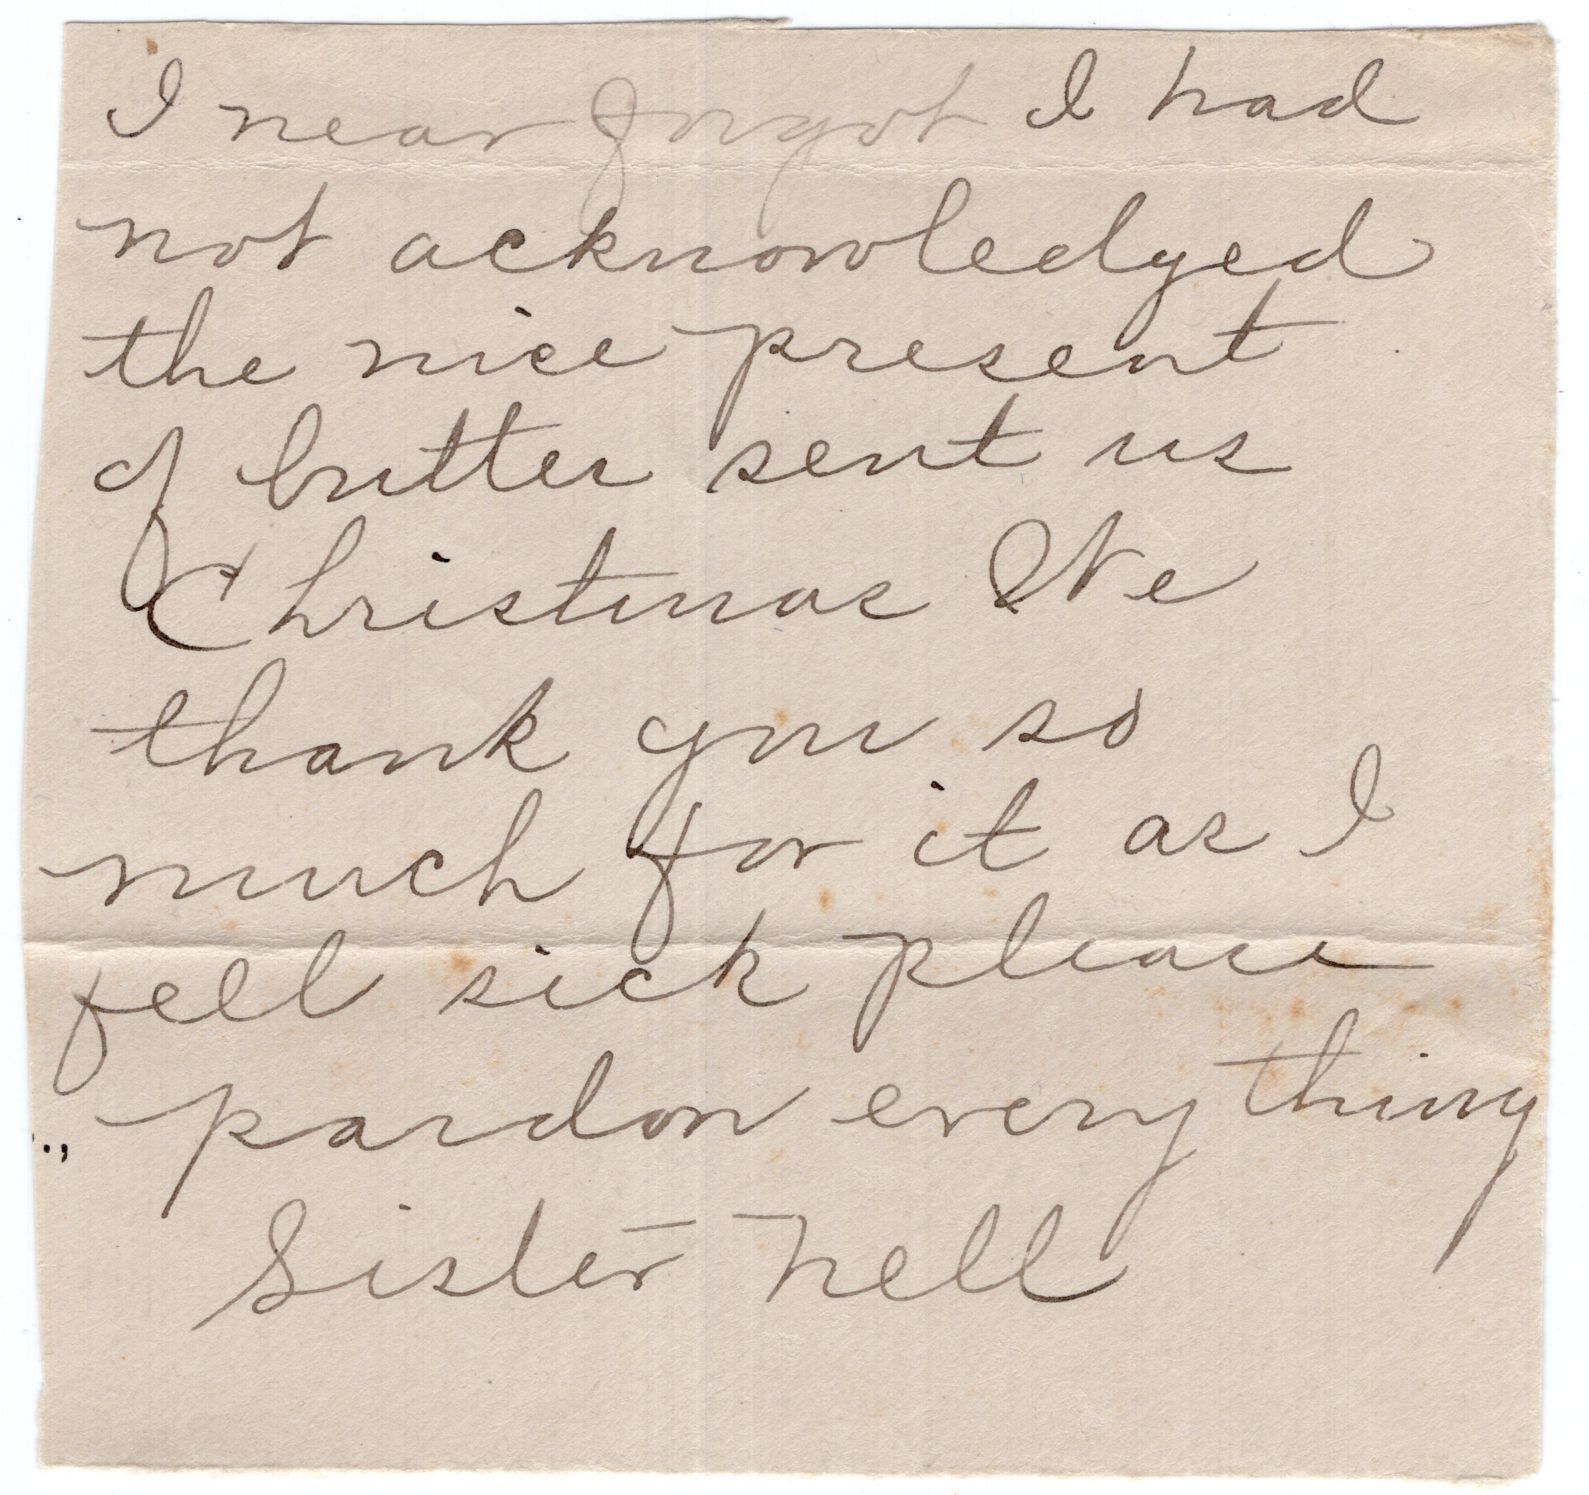 I near forgot I had
not acknowledged
the nice present
of butter sent us
Christmas We
thank you so
much for it as I
fell sick please
pardon every thing
Sister Nell